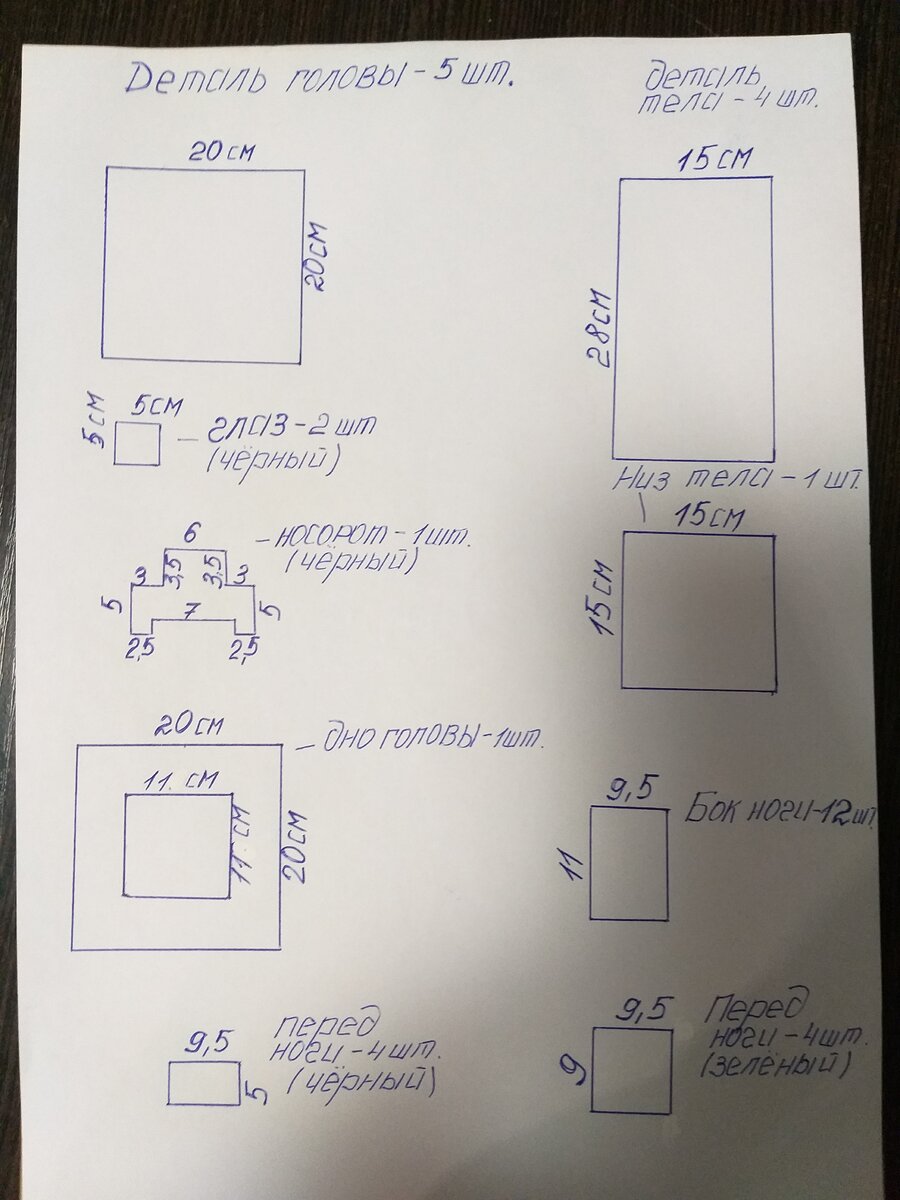 Деталь головы - 5 шт.
20 см
20 см
5 см
5 см
глаз - 2 шт
(чёрный)
6
носорот - 1 шт.
(чёрный)
3
3,5
3,5
3
5
7
5
2,5
2,5
20 см
дно головы - 1 шт.
11 см
11 см
20 см
9,5
перед
ноги - 4 шт.
(чёрный)
5
деталь
тела - 4 шт.
15 см
28 см
Низ тела - 1 шт.
15 см
15 см
9,5
Бок ноги - 12 шт
11
9,5
Перед
ноги - 4 шт.
(зелёный)
9